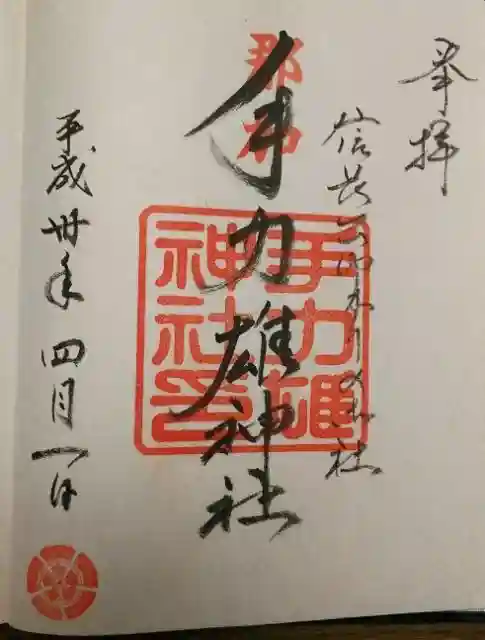 奉拝
信長公ゆかりの御社
那加
手力雄神社
手力雄
神社印
平成卅年 四月一日